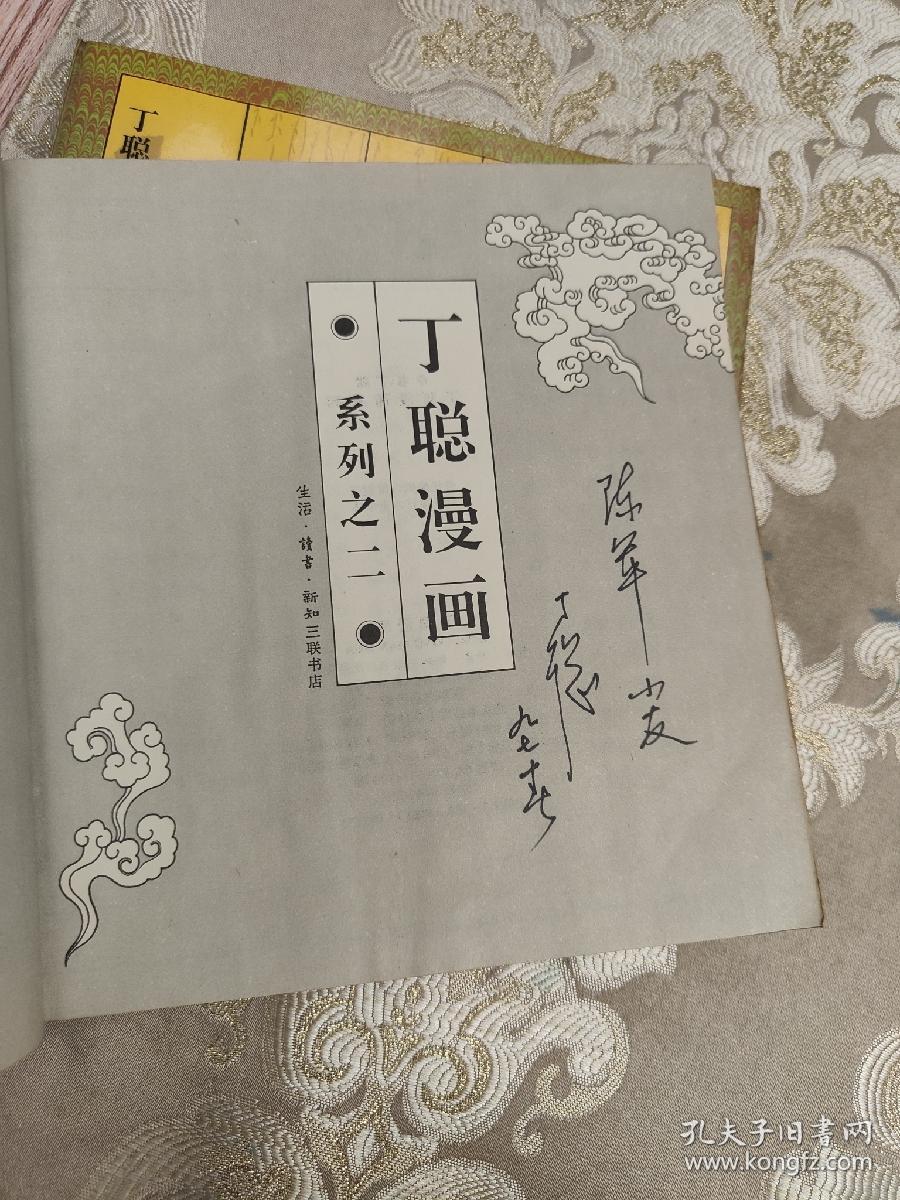 丁聪
丁聪漫画
系列之二
生活·讀書·新知三联书店
陈苹小友
丁聪
九七春
孔夫子旧書网
www.kongfz.com